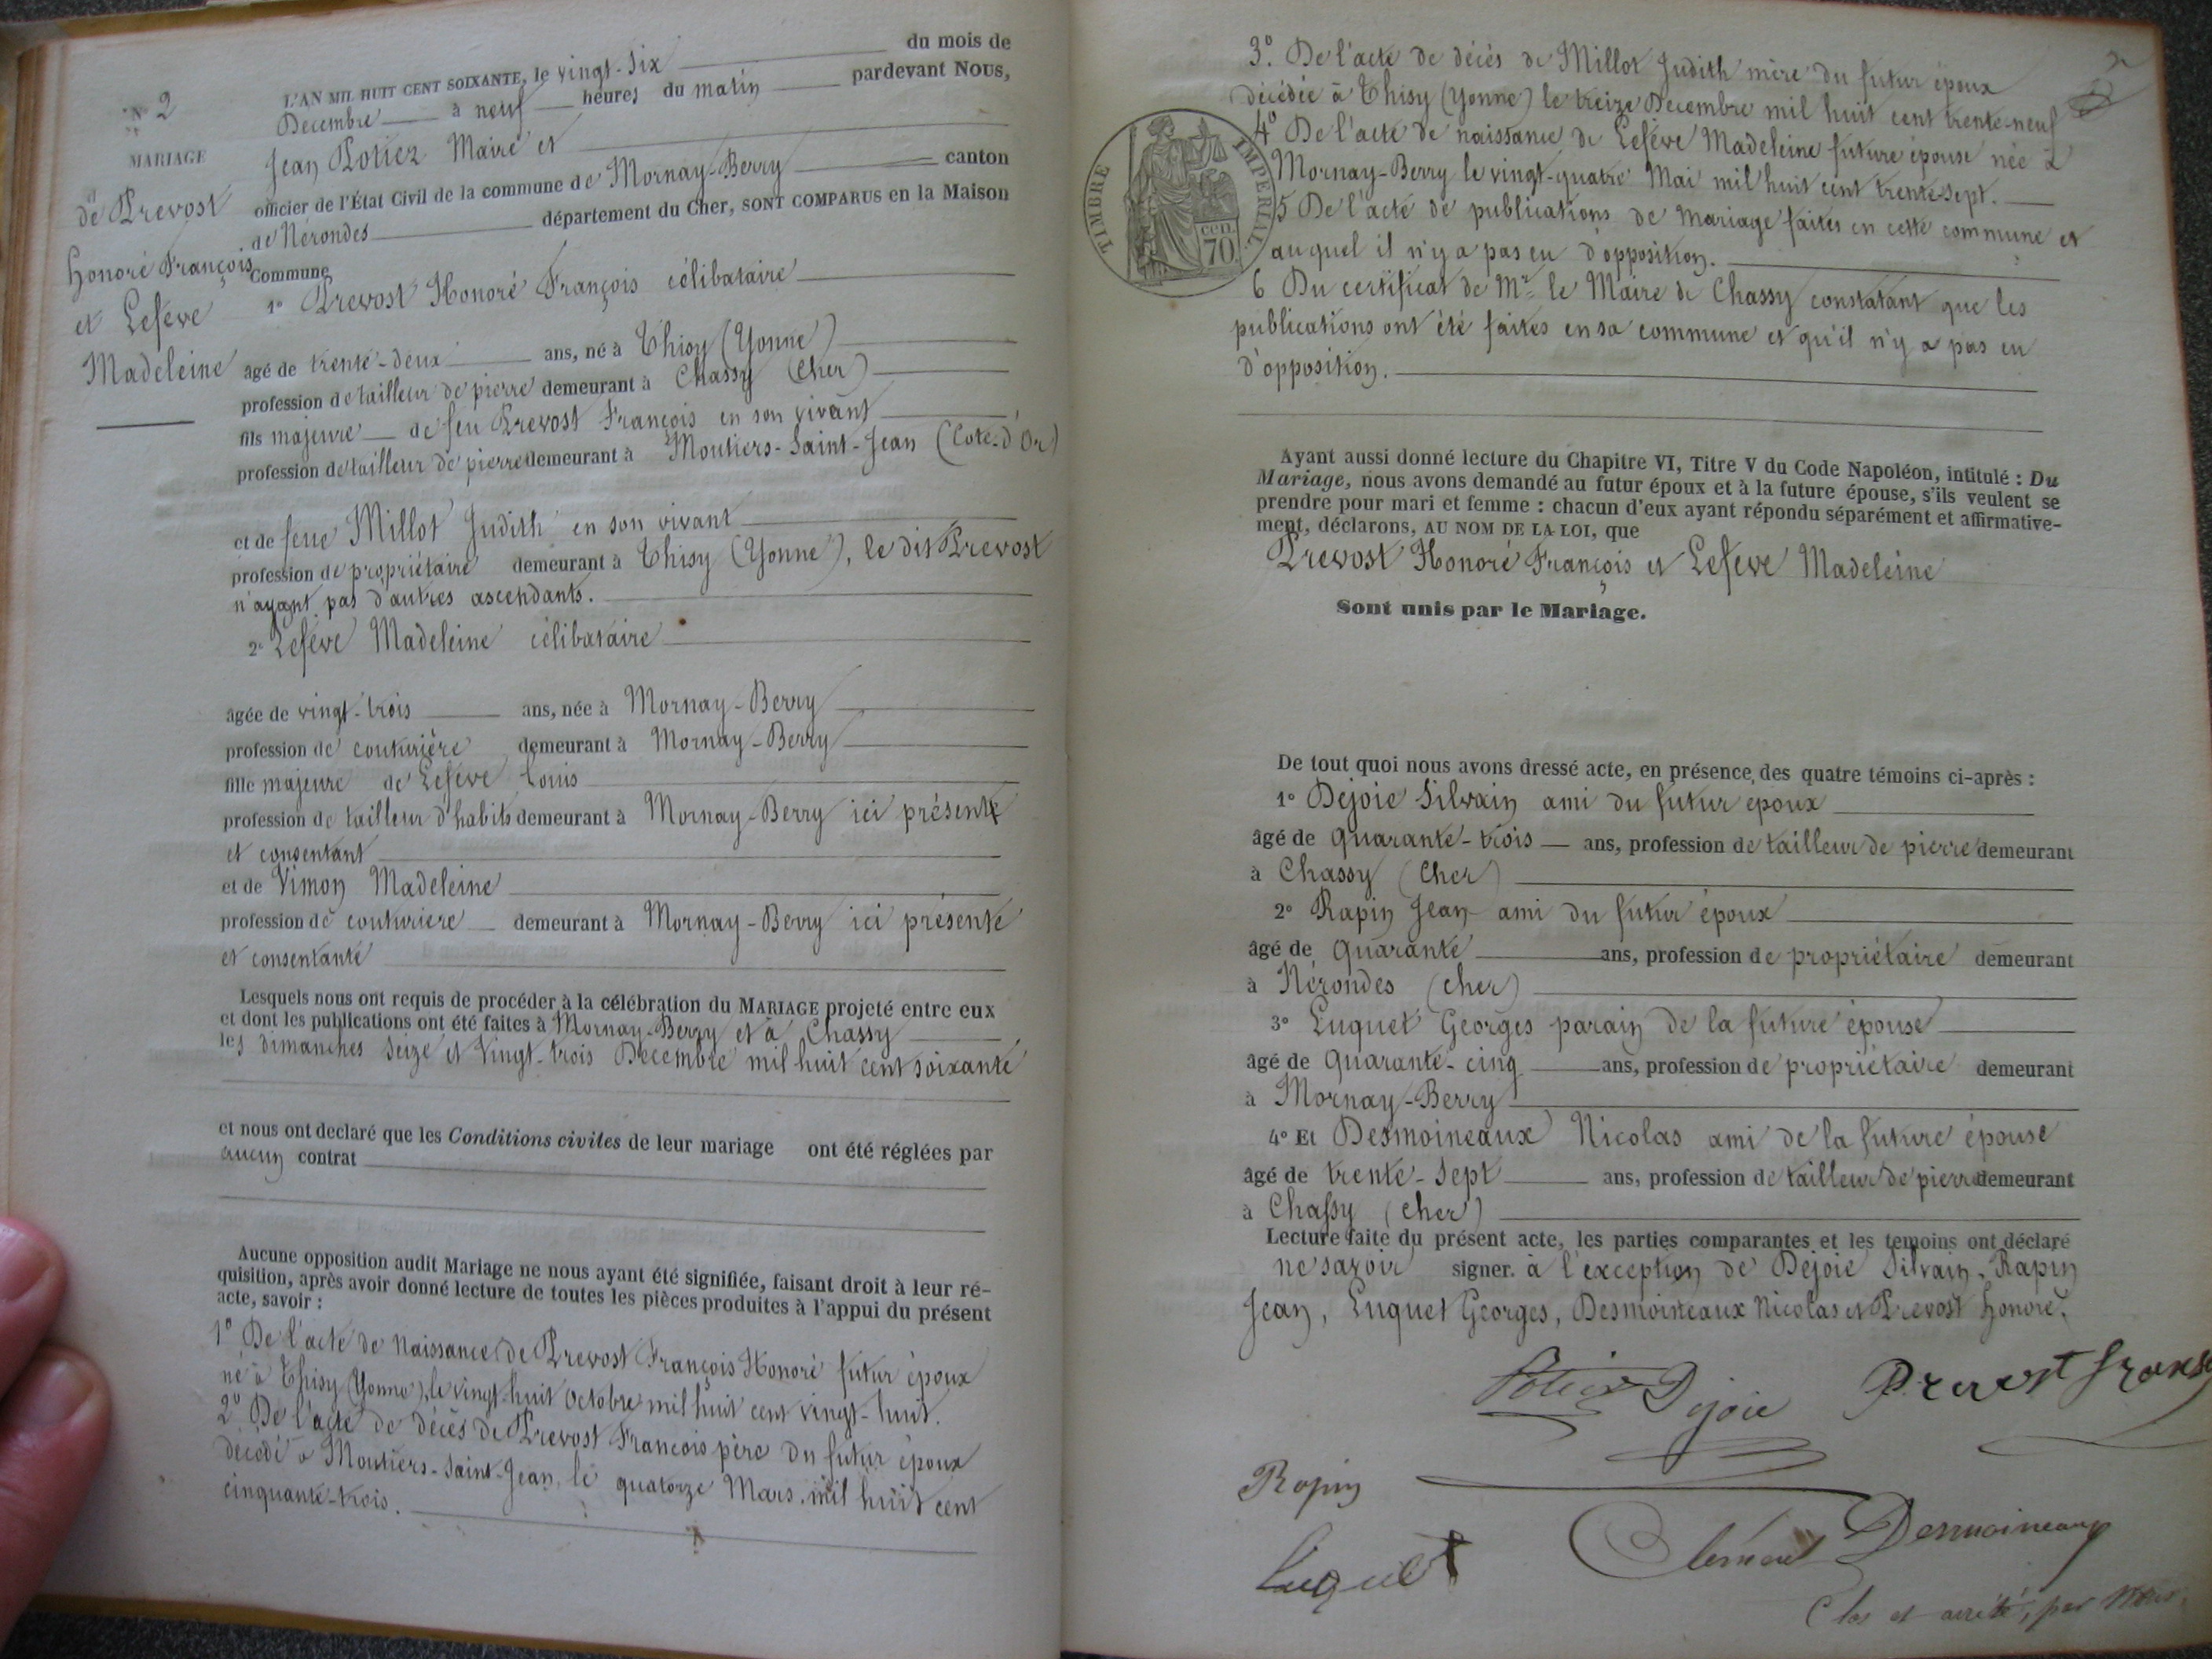 N° 2
MARIAGE
de Prevost
Honoré François
et Lefeve
Madeleine
L'AN MIL HUIT CENT SOIXANTE, le vingt-six du mois de
Decembre à neuf heures du matin pardevant NOUS,
Jean Potier Maire et
officier de l'État Civil de la commune de Mornay-Berry canton
de Nerondes département du Cher, SONT COMPARUS en la Maison
Commune
1° Prevost Honoré François célibataire
âgé de trente-deux ans, né à Thisy (Yonne)
profession de tailleur de pierre demeurant à Chassy (Cher)
fils majeure de feu Prevost François en son vivant
profession de tailleur de pierre demeurant à Moutiers-Saint-Jean (Cote-d'Or)
et de feue Millot Judith en son vivant
profession de propriétaire demeurant à Thisy (Yonne), le dit Prevost
n'ayant pas d'autres ascendants.
2° Lefeve Madeleine célibataire
âgée de vingt-trois ans, née à Mornay-Berry
profession de couturière demeurant à Mornay-Berry
fille majeure de Lefeve Louis
profession de tailleur d'habits demeurant à Mornay-Berry ici présent
et consentant
et de Vimon Madeleine
profession de couturiere demeurant à Mornay-Berry ici présente
et consentante
Lesquels nous ont requis de procéder à la célébration du MARIAGE projeté entre eux
et dont les publications ont été faites à Mornay-Berry et à Chassy
les dimanches seize et vingt-trois Decembre mil huit cent soixante
et nous ont declaré que les Conditions civiles de leur mariage ont été réglées par
aucun contrat
Aucune opposition audit Mariage ne nous ayant été signifiée, faisant droit à leur ré-
quisition, après avoir donné lecture de toutes les pièces produites à l'appui du présent
acte, savoir :
1° De l'acte de Naissance de Prevost François Honoré futur époux
né à Thisy (Yonne), le vingt-huit Octobre mil huit cent vingt-huit.
2° De l'acte de décès de Prevost François père du futur époux
décédé à Moutiers-Saint-Jean, le quatorze Mars mil huit cent
cinquante-trois.
3° De l'acte de décès de Millot Judith mère du futur époux
décédée à Thisy (Yonne) le treize Decembre mil huit cent trente-neuf
4° De l'acte de naissance de Lefeve Madeleine future épouse née à
Mornay-Berry le vingt-quatre Mai mil huit cent trente-sept.
5 De l'acte de publications de mariage faites en cette commune et
auquel il n'y a pas eu d'opposition.
6 Du certificat de Mr le Maire de Chassy constatant que les
publications ont été faites en sa commune et qu'il n'y a pas eu
d'opposition.
TIMBRE IMPERIAL
cen. 70
Ayant aussi donné lecture du Chapitre VI, Titre V du Code Napoléon, intitulé : Du
Mariage, nous avons demandé au futur époux et à la future épouse, s'ils veulent se
prendre pour mari et femme : chacun d'eux ayant répondu séparément et affirmative-
ment, déclarons, AU NOM DE LA LOI, que
Prevost Honoré François et Lefeve Madeleine
Sont unis par le Mariage.
De tout quoi nous avons dressé acte, en présence des quatre témoins ci-après :
1° Dejoie Silvain ami du futur epoux
âgé de quarante-trois ans, profession de tailleur de pierre demeurant
à Chassy (Cher)
2° Rapin Jean ami du futur époux
âgé de quarante ans, profession de propriétaire demeurant
à Nérondes (cher)
3° Luquet Georges parain de la future épouse
âgé de quarante-cinq ans, profession de propriétaire demeurant
à Mornay-Berry
4° Et Desmoineaux Nicolas ami de la future épouse
âgé de trente-sept ans, profession de tailleur de pierre demeurant
à Chassy (cher)
Lecture faite du présent acte, les parties comparantes et les temoins ont déclaré
ne savoir signer. à l'exception de Dejoie Silvain, Rapin
Jean, Luquet Georges, Desmoineaux Nicolas et Prevost Honoré.
Potier Dejoie Prevost
Rapin
Luquet Clément Desmoineaux
Clos et arrêté, par Nous